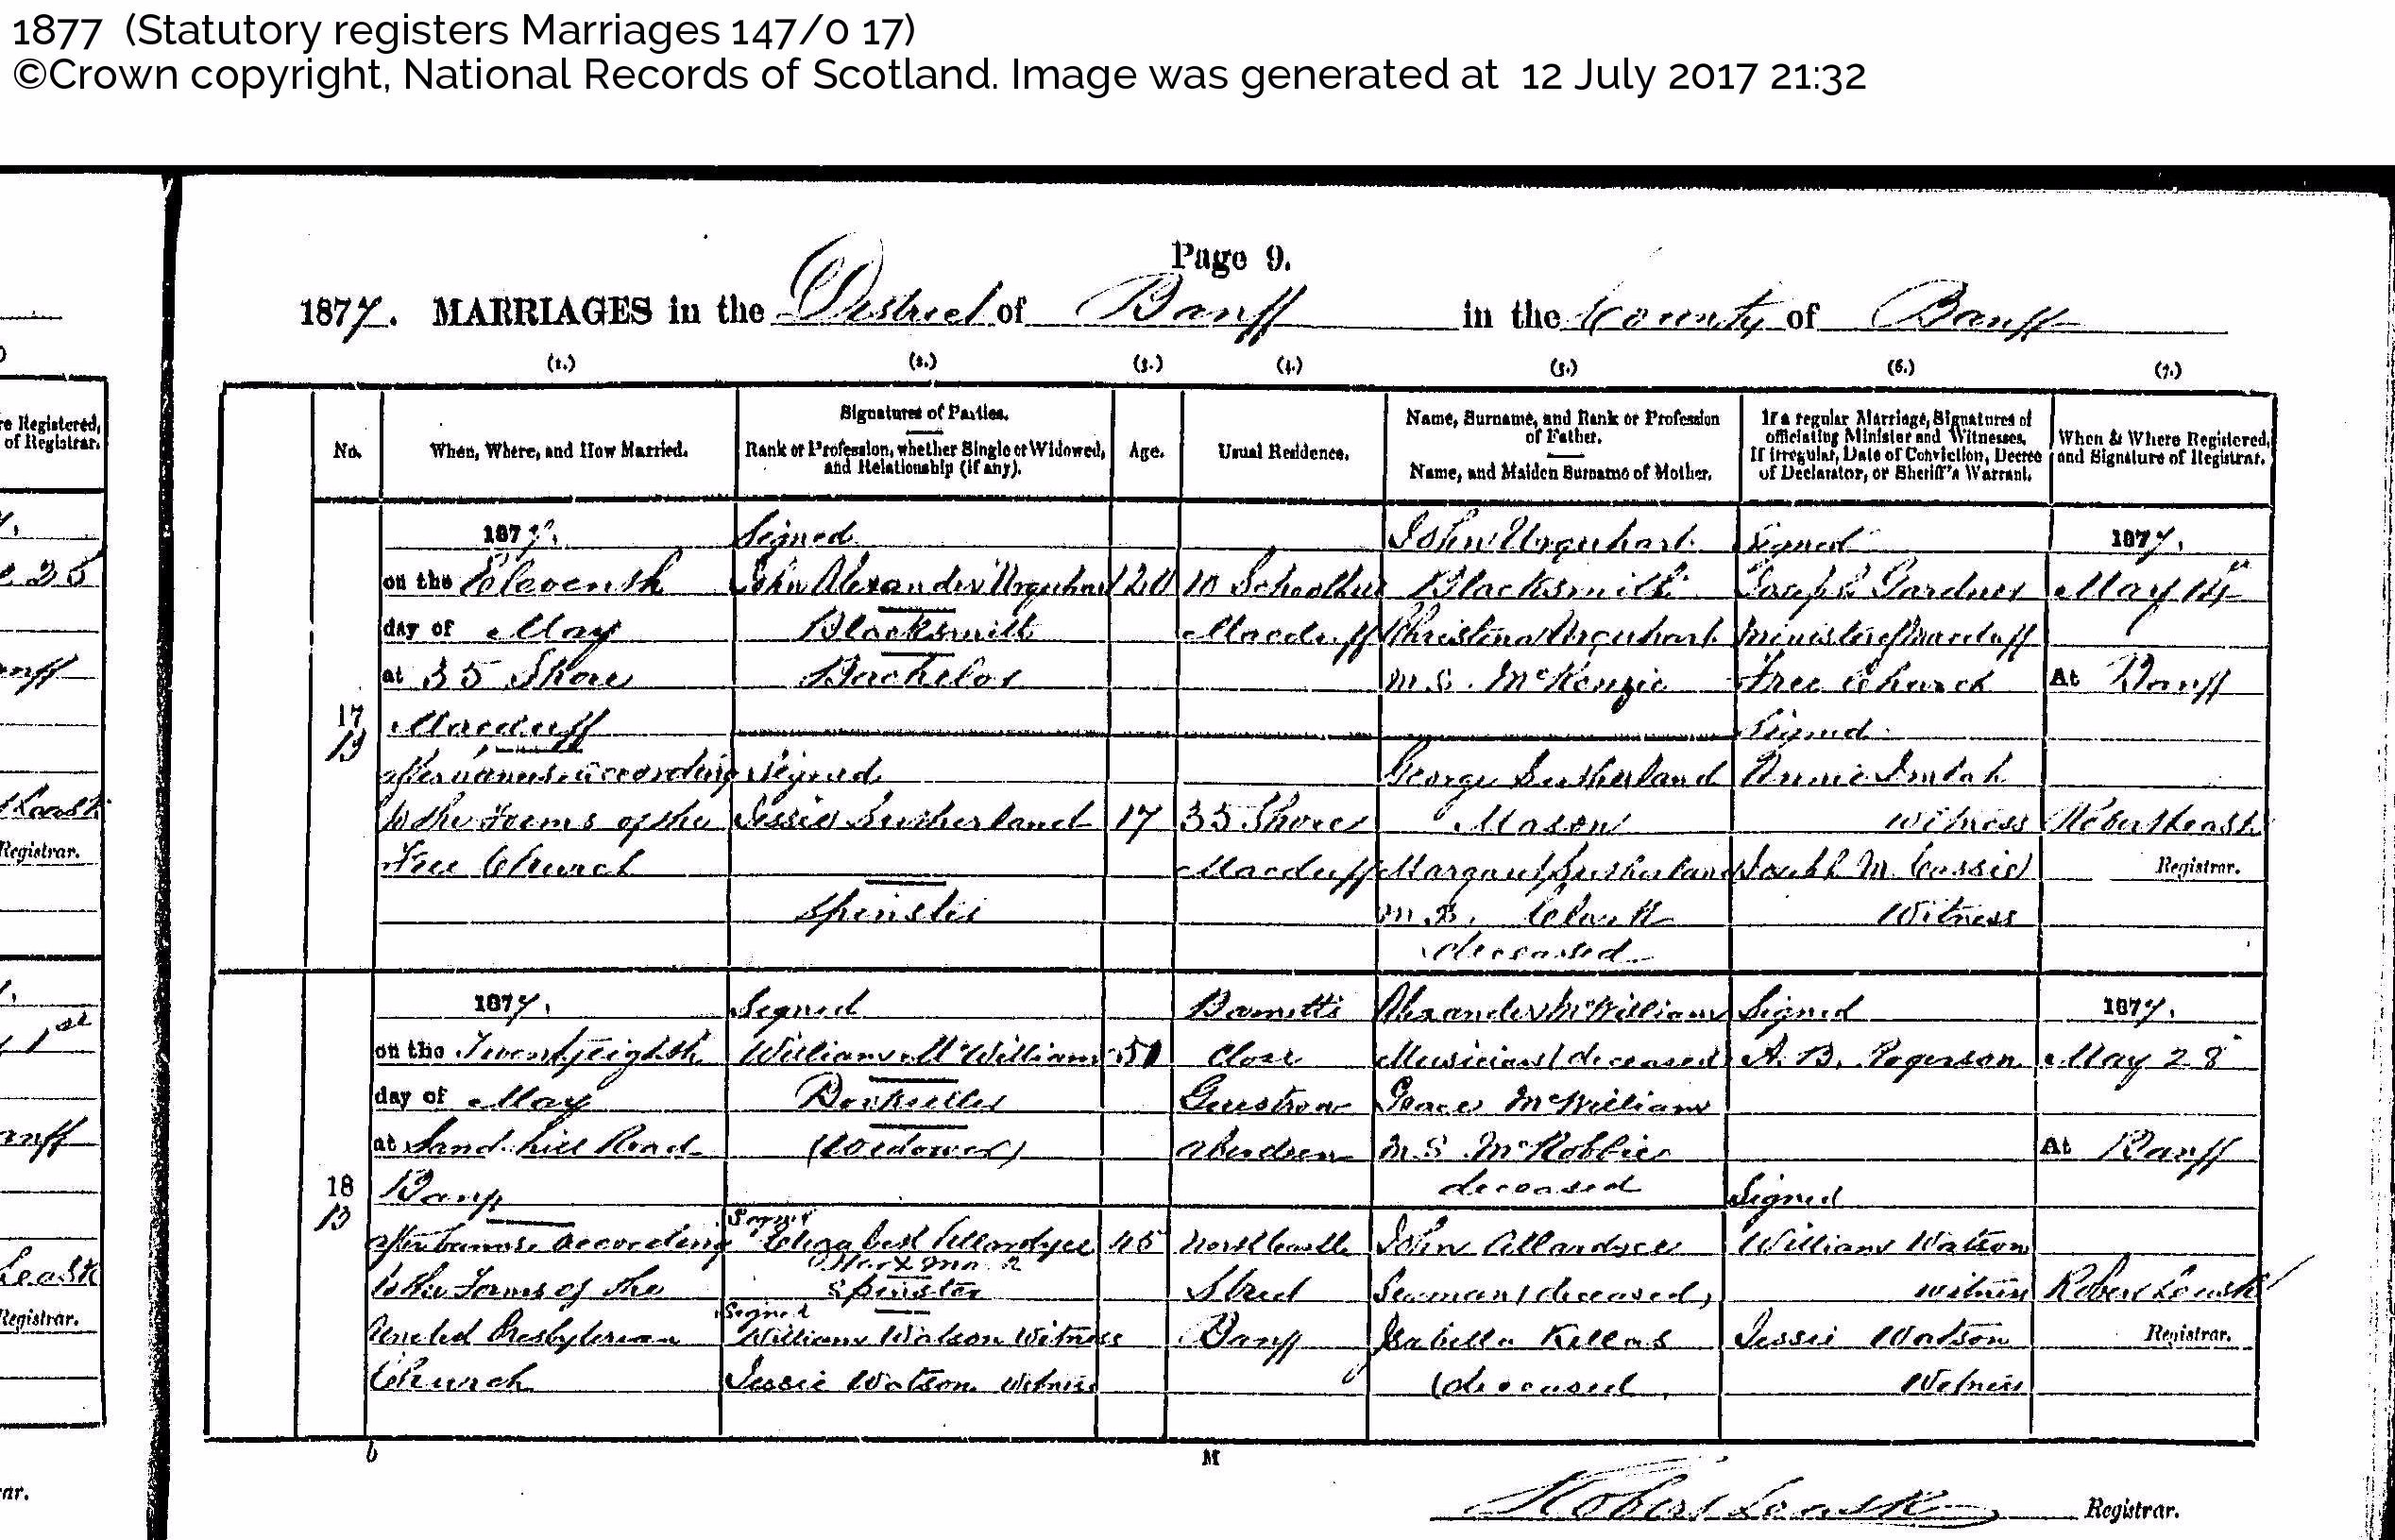 1877 (Statutory registers Marriages 147/0 17)
©Crown copyright, National Records of Scotland. Image was generated at 12 July 2017 21:32
Page 9.
1877. MARRIAGES in the District of Banff in the County of Banff
(1.) (2.) (3.) (4.) (5.) (6.) (7.)
re Registered,
of Registrar.
No.
When, Where, and How Married.
Signatures of Parties.
Rank or Profession, whether Single or Widowed,
and Relationship (if any).
Age.
Usual Residence.
Name, Surname, and Rank or Profession
of Father.
Name, and Maiden Surname of Mother.
If a regular Marriage, Signatures of
officiating Minister and Witnesses.
If irregular, Date of Conviction, Decree
of Declarator, or Sheriff's Warrant.
When & Where Registered,
and Signature of Registrar.
17
13
1877.
on the Eleventh
day of May
at 35 Shore
Macduff
after banns according
to the Forms of the
Free Church
Signed
John Alexander Urquhart
Blacksmith
Bachelor
Signed
Jessie Sutherland
Spinster
20
17
10
Macduff
35 Shore
Macduff
John Urquhart
Blacksmith
Christina Urquhart
M.S. McKenzie
George Sutherland
Mason
Margaret Sutherland
M.S. Clark
deceased
Signed
Joseph Gardner
Minister of Macduff
Free Church
Signed
Annie Imlah
Witness
M. Cassie
Witness
1877.
May 14th
At Banff
Robert Leask
Registrar.
18
13
1877.
on the Twenty eighth
day of May
at Sand-hill Road
Banff
after banns according
to the Forms of the
United Presbyterian
Church
Signed
William McWilliam
(Widower)
Signed
Elizabeth Allardyce
Her X
Spinster
Signed
William Watson Witness
Jessie Watson Witness
51
45
Close
Aberdeen
North Castle
Street
Banff
Alexander McWilliam
Musician (deceased)
Grace McWilliam
M.S. McRobbie
deceased
John Allardyce
Seaman (deceased)
Isabella
(deceased)
Signed
A. B. Rogerson
Signed
William Watson
witness
Jessie Watson
Witness
1877.
May 28
At Banff
Robert Leask
Registrar.
M
Robert Leask Registrar.